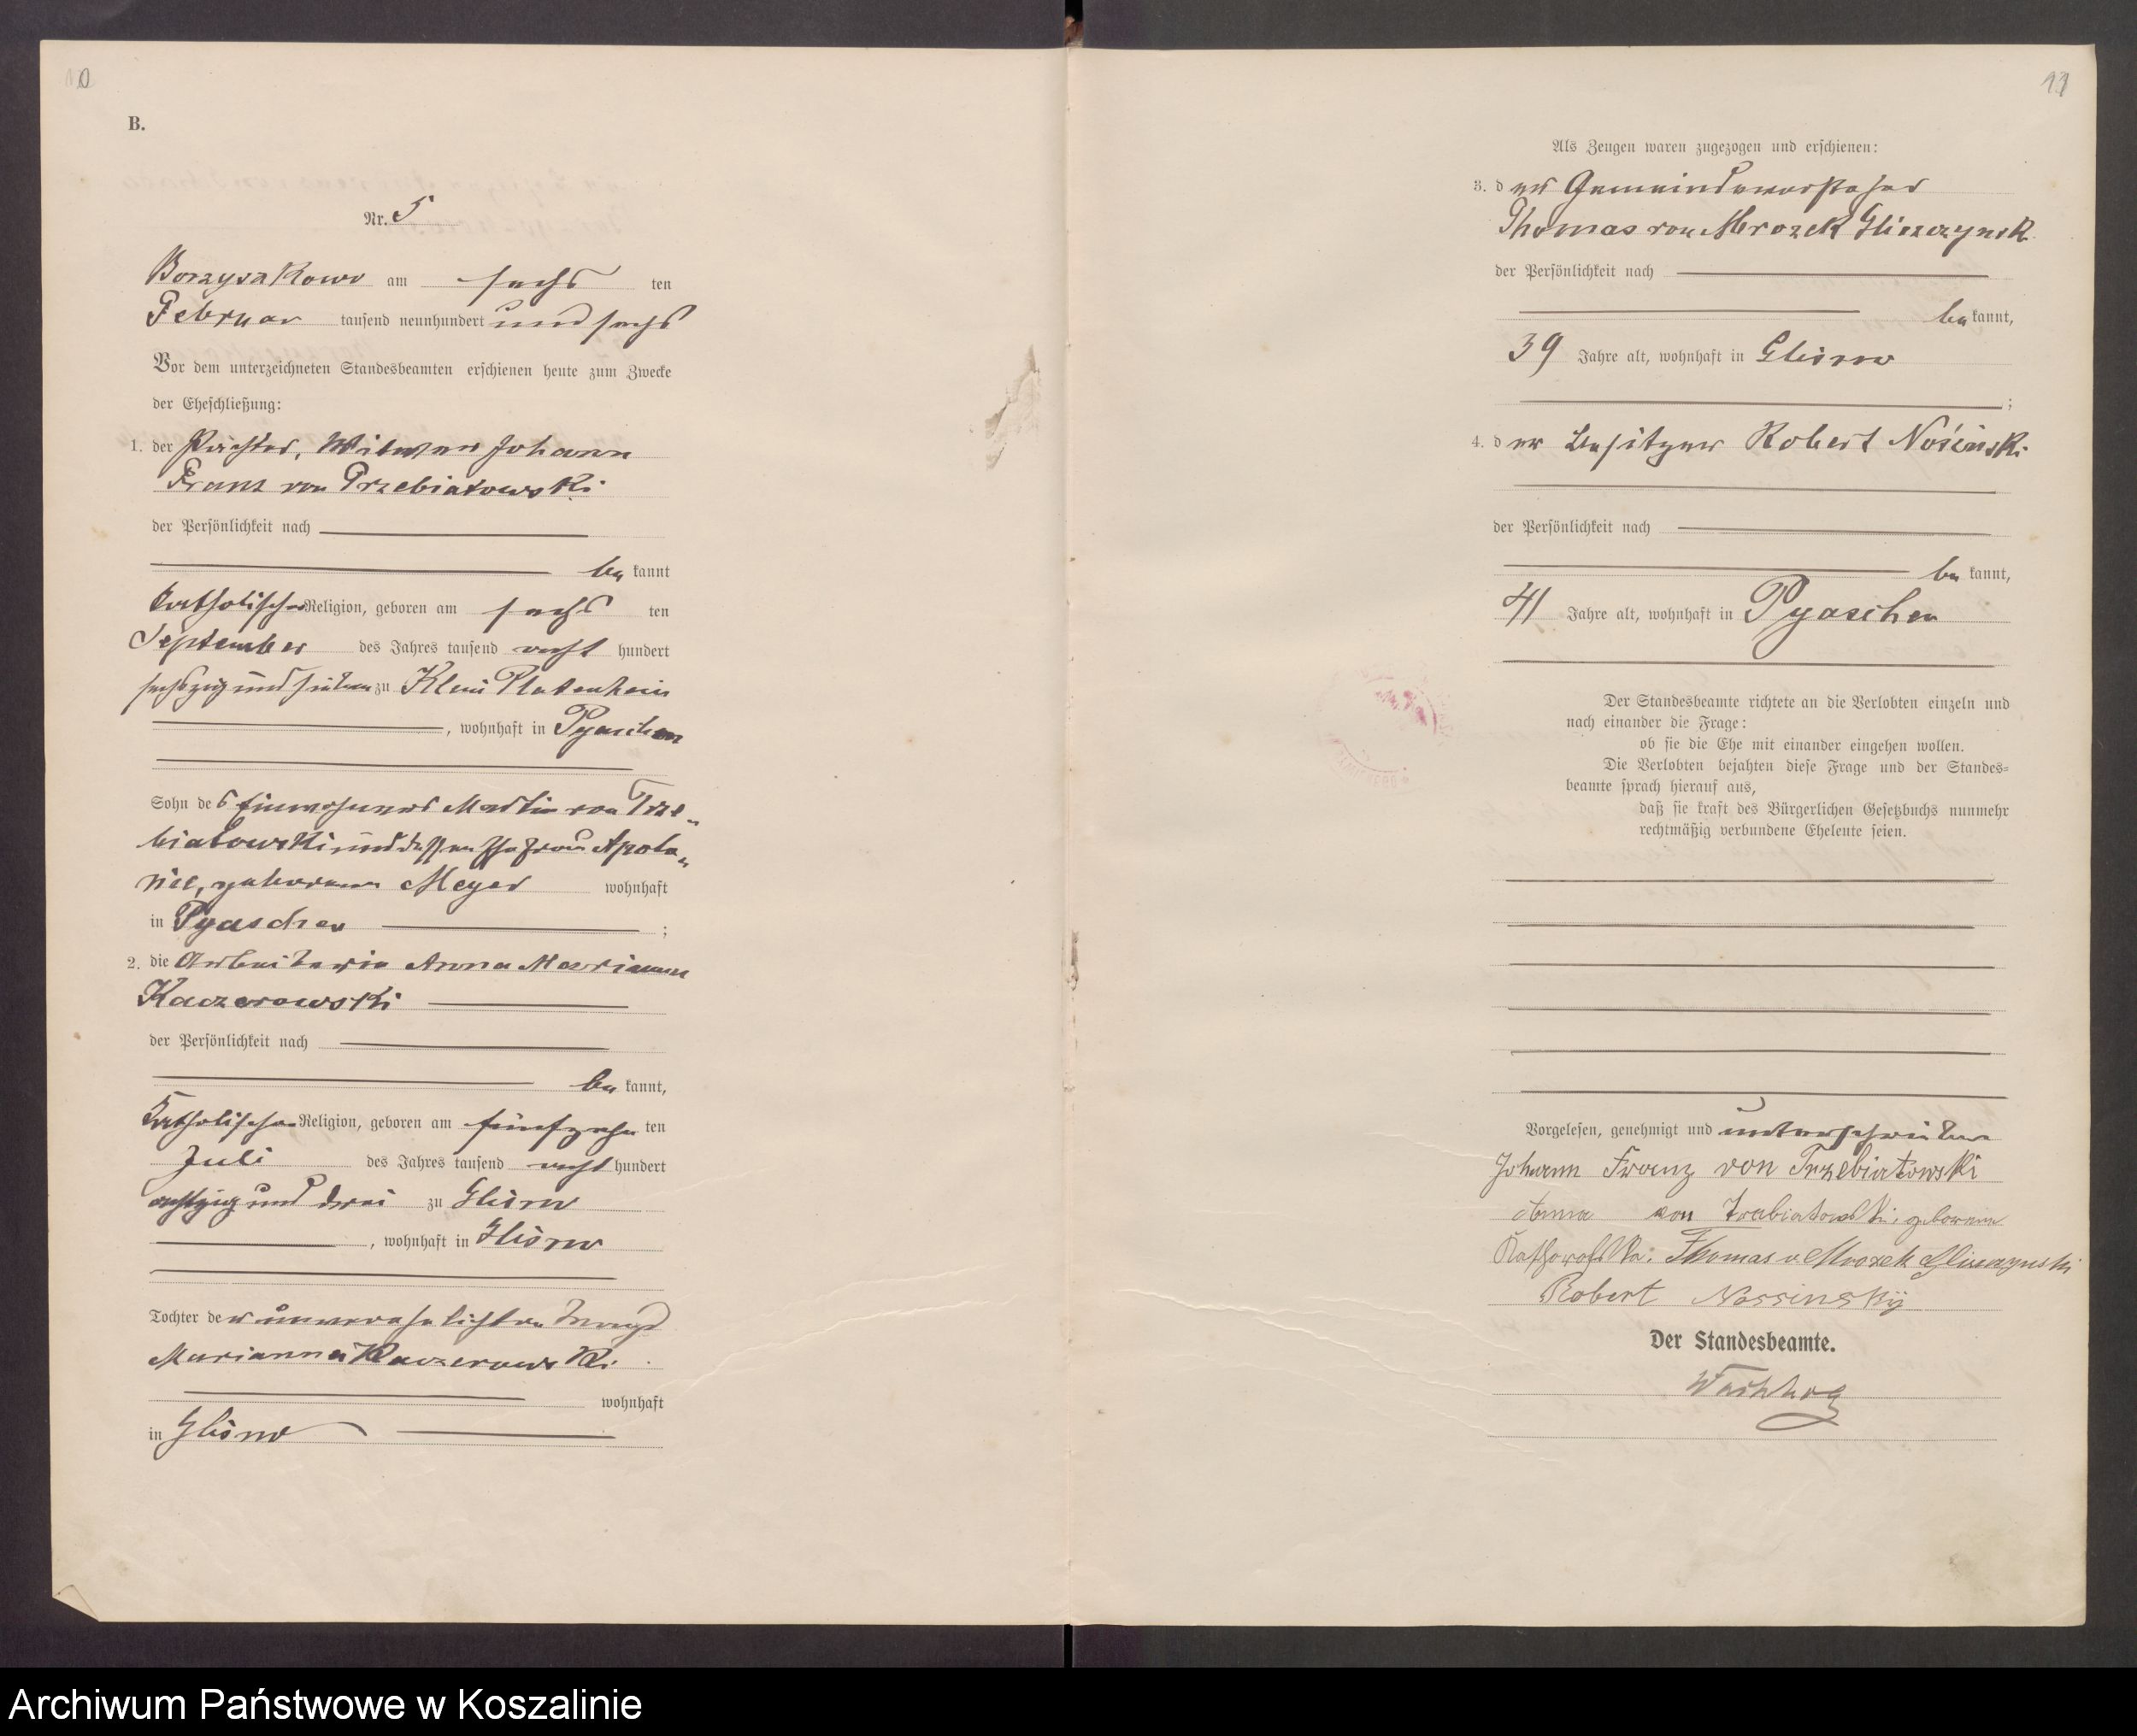 10
B.
Nr. 5
Borzyszkowo am sechs ten
Februar tausend neunhundert und sechs
Vor dem unterzeichneten Standesbeamten erschienen heute zum Zwecke
der Eheschließung:
1. der Pächter, Witwer Johann
Franz von Trzebiatowski
der Persönlichkeit nach
be kannt
katholischer Religion, geboren am sechs ten
September des Jahres tausend acht hundert
sechszig und sieben zu Klein Platenhein
, wohnhaft in Pyaschen
Sohn des Einwohners Martin von Trze-
biatowski und dessen Ehefrau Apolo-
nie, geborenen Meyer wohnhaft
in Pyaschen ;
2. die Arbeiterin Anna Marianna
Kaczerowski
der Persönlichkeit nach
be kannt,
katholischer Religion, geboren am fünfzehn ten
Juli des Jahres tausend acht hundert
achtzig und drei zu Glisno
, wohnhaft in Glisno
Tochter der unverehelichten Magd
Marianna Kaczerowski
wohnhaft
in Glisno
11
Als Zeugen waren zugezogen und erschienen:
3. der Gemeindevorsteher
Thomas von Mrozek Gliszczynski
der Persönlichkeit nach
be kannt,
39 Jahre alt, wohnhaft in Glisno
;
4. der Besitzer Robert Nośinski
der Persönlichkeit nach
be kannt,
41 Jahre alt, wohnhaft in Pyaschen
Der Standesbeamte richtete an die Verlobten einzeln und
nach einander die Frage:
ob sie die Ehe mit einander eingehen wollen.
Die Verlobten bejahten diese Frage und der Standes-
beamte sprach hierauf aus,
daß sie kraft des Bürgerlichen Gesetzbuchs nunmehr
rechtmäßig verbundene Eheleute seien.
Vorgelesen, genehmigt und unterschrieben
Johann Franz von Trzebiatowski
Anna von Trzebiatowski, geborene
Thomas v Mrozek Gliszczynski
Robert Nossinskÿ
Der Standesbeamte.
Archiwum Państwowe w Koszalinie